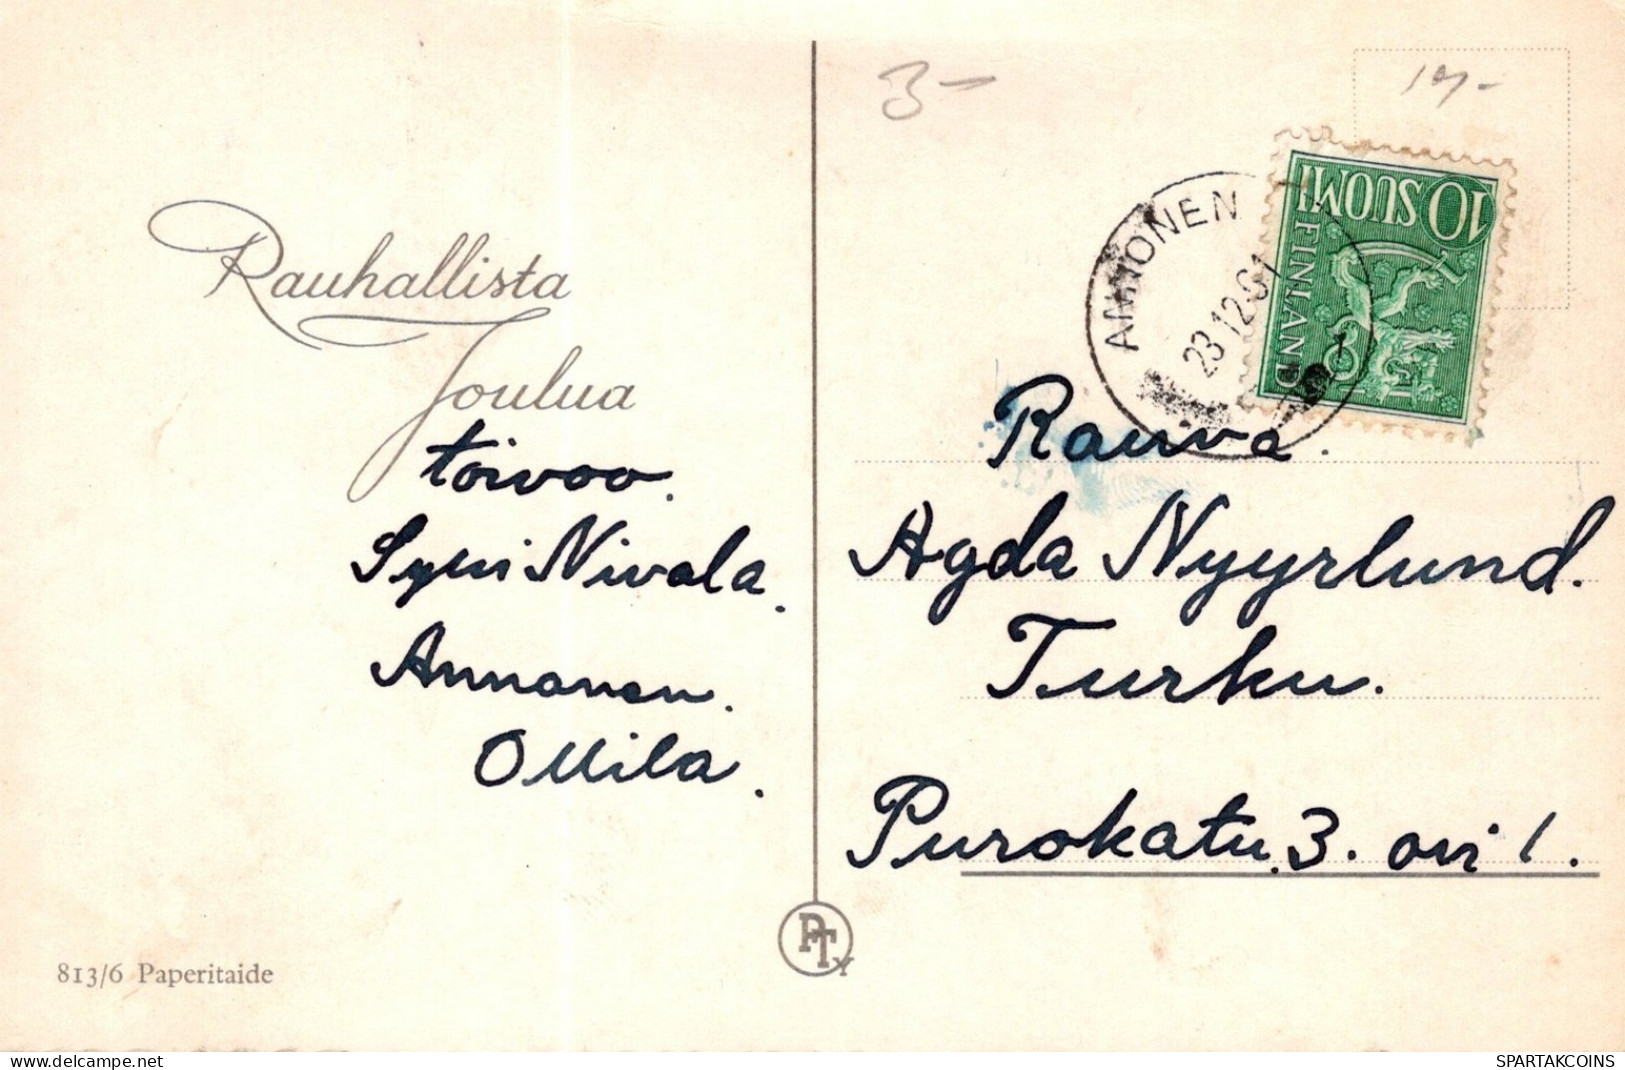 Rauhallista
Joulua
toivoo.
Sylvi Nivala.
Annonen.
Ollila.
813/6 Paperitaide
PTy
3-
10 SUOMI
FINLAND
23.12.61
1
Rauva.
Agda Nyyrlund.
Turku.
Purokatu. 3. ovi 1.
www.delcampe.net
SPARTAKCOINS